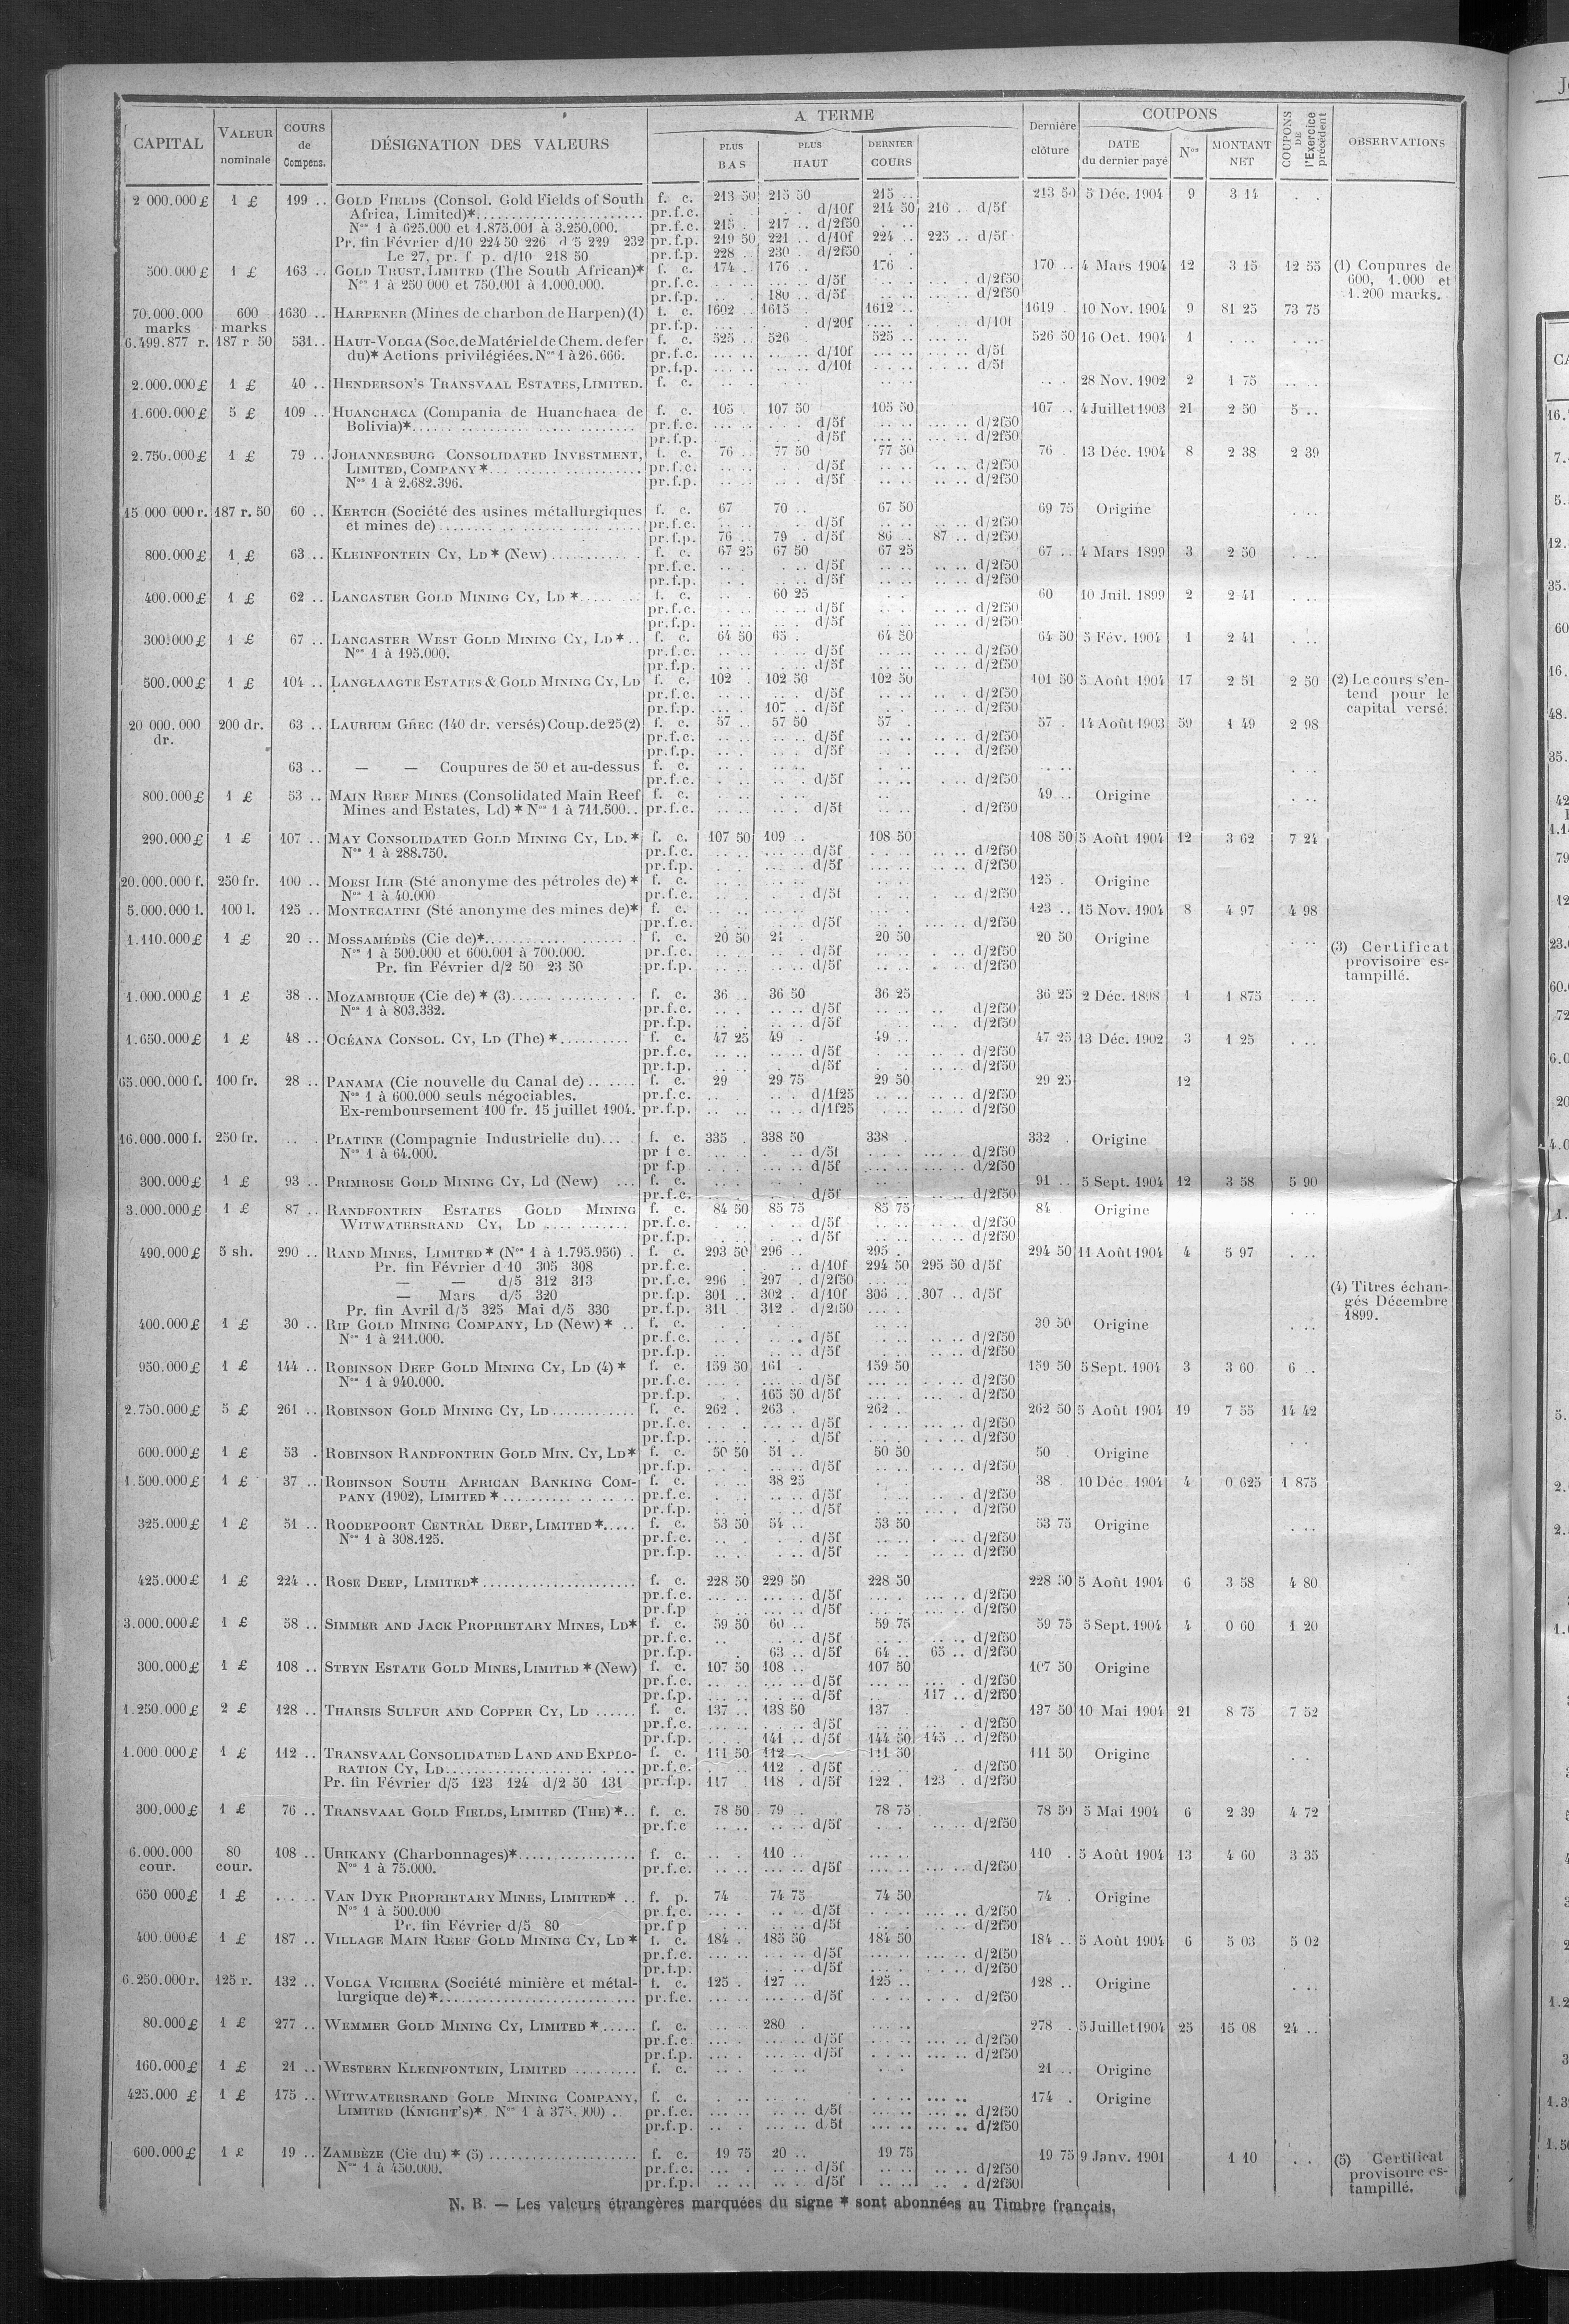 CAPITAL | VALEUR nominale | COURS de Compens. | DÉSIGNATION DES VALEURS | A TERME | PLUS BAS | PLUS HAUT | DERNIER COURS | Dernière clôture | COUPONS | DATE du dernier payé | Nos | MONTANT NET | COUPONS DE l'Exercice précédent | OBSERVATIONS
2 000.000 £ 1 £ 199 .. GOLD FIELDS (Consol. Gold Fields of South f. c. 213 50 215 50 215 .. 213 50 5 Déc. 1904 9 3 14 . .
Africa, Limited)*. pr.f.c. d/10f 214 50 216 .. d/5f
Nos 1 à 625.000 et 1.875.001 à 3.250.000. pr.f.c. 215 . 217 .. d/2f50
Pr. fin Février d/10 224 50 226 d 5 229 232 pr.f.p. 219 50 221 .. d/10f 224 .. 225 .. d/5f
Le 27, pr. f p. d/10 218 50 pr.f.p. 228 .. 230 . d/2f50
500.000 £ 1 £ 163 .. GOLD TRUST, LIMITED (The South African)* f. c. 174 . 176 .. 176 . 170 .. 4 Mars 1904 12 3 15 12 55 (1) Coupures de
Nos 1 à 250 000 et 750.001 à 1.000.000. pr.f.c. d/5f d/2f50 600, 1.000 et
pr.f.p. 180 .. d/5f d/2f50 1.200 marks.
70.000.000 600 1630 .. HARPENER (Mines de charbon de Harpen) (1) f. c. 1602 .. 1615 1612 .. 1619 . 10 Nov. 1904 9 81 25 73 75
marks marks pr.f.p. d/20f d/10f
6.499.877 r. 187 r 50 531.. HAUT-VOLGA (Soc. de Matériel de Chem. de fer f. c. 525 .. 526 525 .. 526 50 16 Oct. 1904 1
du)* Actions privilégiées. Nos 1 à 26.666. pr.f.c. d/10f d/5f
pr.f.p. d/10f d/5f
2.000.000 £ 1 £ 40 .. HENDERSON'S TRANSVAAL ESTATES, LIMITED. f. c. 28 Nov. 1902 2 1 75
1.600.000 £ 5 £ 109 .. HUANCHACA (Compania de Huanchaca de f. c. 105 . 107 50 105 50 107 .. 4 Juillet 1903 21 2 50 5 ..
Bolivia)* pr.f.c. d/5f d/2f50
pr.f.p. d/5f d/2f50
2.750.000 £ 1 £ 79 .. JOHANNESBURG CONSOLIDATED INVESTMENT, f. c. 76 .. 77 50 77 50 76 . 13 Déc. 1904 8 2 38 2 39
LIMITED, COMPANY * pr.f.c. d/5f d/2f50
Nos 1 à 2.682.396. pr.f.p. d/5f d/2f50
15 000 000 r. 187 r. 50 60 .. KERTCH (Société des usines métallurgiques f. c. 67 70 .. 67 50 69 75 Origine
et mines de) pr.f.c. d/5f d/2f50
pr.f.p. 76 .. 79 . d/5f 86 .. 87 .. d/2f50
800.000 £ 1 £ 63 .. KLEINFONTEIN CY, LD * (New) f. c. 67 25 67 50 67 25 67 .. 4 Mars 1899 3 2 50
pr.f.c. d/5f d/2f50
pr.f.p. d/5f d/2f50
400.000 £ 1 £ 62 .. LANCASTER GOLD MINING CY, LD * f. c. 60 25 60 10 Juil. 1899 2 2 41
pr.f.c. d/5f d/2f50
pr.f.p. d/5f d/2f50
300.000 £ 1 £ 67 .. LANCASTER WEST GOLD MINING CY, LD * .. f. c. 64 50 65 . 64 50 64 50 5 Fév. 1904 1 2 41
Nos 1 à 195.000. pr.f.c. d/5f d/2f50
pr.f.p. d/5f d/2f50
500.000 £ 1 £ 104 .. LANGLAAGTE ESTATES & GOLD MINING CY, LD f. c. 102 . 102 50 102 50 101 50 5 Août 1904 17 2 51 2 50 (2) Le cours s'en-
pr.f.c. d/5f d/2f50 tend pour le
pr.f.p. 107 .. d/5f d/2f50 capital versé.
20 000. 000 200 dr. 63 .. LAURIUM GREC (140 dr. versés) Coup. de 25 (2) f. c. 57 .. 57 50 57 . 57 . 14 Août 1903 59 1 49 2 98
dr. pr.f.c. d/5f d/2f50
pr.f.p. d/5f d/2f50
63 .. — — Coupures de 50 et au-dessus f. c.
pr.f.c. d/5f d/2f50
800.000 £ 1 £ 53 .. MAIN REEF MINES (Consolidated Main Reef f. c. 49 .. Origine
Mines and Estates, Ld) * Nos 1 à 711.500.. pr.f.c. d/5f d/2f50
290.000 £ 1 £ 107 .. MAY CONSOLIDATED GOLD MINING CY, LD. * f. c. 107 50 109 .. 108 50 108 50 5 Août 1904 12 3 62 7 24
Nos 1 à 288.750. pr.f.c. d/5f d/2f50
pr.f.p. d/5f d/2f50
20.000.000 f. 250 fr. 100 .. MOESI ILIR (Sté anonyme des pétroles de) * f. c. 125 . Origine
Nos 1 à 40.000 pr.f.c. d/5f d/2f50
5.000.000 l. 100 l. 125 .. MONTECATINI (Sté anonyme des mines de)* f. c. 123 .. 15 Nov. 1904 8 4 97 4 98
pr.f.c. d/5f d/2f50
1.110.000 £ 1 £ 20 .. MOSSAMÉDÈS (Cie de)* f. c. 20 50 21 . 20 50 20 50 Origine (3) Certificat
Nos 1 à 500.000 et 600.001 à 700.000. pr.f.c. d/5f d/2f50 provisoire es-
Pr. fin Février d/2 50 23 50 pr.f.p. d/5f d/2f50 tampillé.
1.000.000 £ 1 £ 38 .. MOZAMBIQUE (Cie de) * (3) f. c. 36 .. 36 50 36 25 36 25 2 Déc. 1898 1 1 875
Nos 1 à 803.332. pr.f.c. d/5f d/2f50
pr.f.p. d/5f d/2f50
1.650.000 £ 1 £ 48 .. OCÉANA CONSOL. CY, LD (The) * f. c. 47 25 49 . 49 .. 47 25 13 Déc. 1902 3 1 25
pr.f.c. d/5f d/2f50
pr.f.p. d/5f d/2f50
65.000.000 f. 100 fr. 28 .. PANAMA (Cie nouvelle du Canal de) f. c. 29 29 75 29 50 29 25 12
Nos 1 à 600.000 seuls négociables. pr.f.c. d/1f25 d/2f50
Ex-remboursement 100 fr. 15 juillet 1904. pr.f.p. d/1f25 d/2f50
16.000.000 f. 250 fr. .. . PLATINE (Compagnie Industrielle du) f. c. 335 . 338 50 338 . 332 . Origine
Nos 1 à 64.000. pr f c. d/5f d/2f50
pr f.p d/5f d/2f50
300.000 £ 1 £ 93 .. PRIMROSE GOLD MINING CY, Ld (New) f. c. 91 .. 5 Sept. 1904 12 3 58 5 90
pr.f.c. d/5f d/2f50
3.000.000 £ 1 £ 87 .. RANDFONTEIN ESTATES GOLD MINING f. c. 84 50 85 75 85 75 84 Origine
WITWATERSRAND CY, LD pr.f.c. d/5f d/2f50
pr.f.p. d/5f d/2f50
490.000 £ 5 sh. 290 .. RAND MINES, LIMITED * (Nos 1 à 1.795.956) . f. c. 293 50 296 .. 295 . 294 50 11 Août 1904 4 5 97
Pr. fin Février d 10 305 308 pr.f.c. d/10f 294 50 295 50 d/5f
— — d/5 312 313 pr.f.c. 296 . 297 . d/2f50 (4) Titres échan-
— Mars d/5 320 pr.f.p. 301 .. 302 . d/10f 306 .. 307 .. d/5f gés Décembre
Pr. fin Avril d/5 325 Mai d/5 330 pr.f.p. 311 312 . d/2f50 1899.
400.000 £ 1 £ 30 .. RIP GOLD MINING COMPANY, LD (New) * .. f. c. 30 50 Origine
Nos 1 à 211.000. pr.f.c. d/5f d/2f50
pr.f.p. d/5f d/2f50
950.000 £ 1 £ 144 .. ROBINSON DEEP GOLD MINING CY, LD (4) * f. c. 159 50 161 . 159 50 159 50 5 Sept. 1904 3 3 60 6 ..
Nos 1 à 940.000. pr.f.c. d/5f d/2f50
pr.f.p. 165 50 d/5f d/2f50
2.750.000 £ 5 £ 261 .. ROBINSON GOLD MINING CY, LD f. c. 262 . 263 . 262 .. 262 50 5 Août 1904 19 7 55 14 42
pr.f.c. d/5f d/2f50
pr.f.p. d/5f d/2f50
600.000 £ 1 £ 53 . ROBINSON RANDFONTEIN GOLD MIN. CY, LD* f. c. 50 50 51 .. 50 50 50 Origine
pr.f.p. d/5f d/2f50
1.500.000 £ 1 £ 37 .. ROBINSON SOUTH AFRICAN BANKING COM- f. c. 38 25 38 . 10 Déc. 1904 4 0 625 1 875
PANY (1902), LIMITED * pr.f.c. d/5f d/2f50
pr.f.p. d/5f d/2f50
325.000 £ 1 £ 51 .. ROODEPOORT CENTRAL DEEP, LIMITED * f. c. 53 50 54 .. 53 50 53 75 Origine
Nos 1 à 308.125. pr.f.c. d/5f d/2f50
pr.f.p. d/5f d/2f50
425.000 £ 1 £ 224 .. ROSE DEEP, LIMITED* f. c. 228 50 229 50 228 50 228 50 5 Août 1904 6 3 58 4 80
pr.f.c. d/5f d/2f50
pr.f.p d/5f d/2f50
3.000.000 £ 1 £ 58 .. SIMMER AND JACK PROPRIETARY MINES, LD* f. c. 59 50 60 .. 59 75 59 75 5 Sept. 1904 4 0 60 1 20
pr.f.c. d/5f d/2f50
pr.f.p. 63 .. d/5f 64 .. 65 .. d/2f50
300.000 £ 1 £ 108 .. STEYN ESTATE GOLD MINES, LIMITED * (New) f. c. 107 50 108 .. 107 50 107 50 Origine
pr.f.c. d/5f d/2f50
pr.f.p. d/5f 117 .. d/2f50
1.250.000 £ 2 £ 128 .. THARSIS SULFUR AND COPPER CY, LD f. c. 137 .. 138 50 137 . 137 50 10 Mai 1904 21 8 75 7 52
pr.f.c. d/5f d/2f50
pr.f.p. 141 .. d/5f 144 50 145 .. d/2f50
1.000 000 £ 1 £ 112 .. TRANSVAAL CONSOLIDATED LAND AND EXPLO- f. c. 111 50 112 .. 111 50 111 50 Origine
RATION CY, LD pr.f.c. 112 . d/5f d/2f50
Pr. fin Février d/5 123 124 d/2 50 131 pr.f.p. 117 118 . d/5f 122 . 123 . d/2f50
300.000 £ 1 £ 76 .. TRANSVAAL GOLD FIELDS, LIMITED (THE) * .. f. c. 78 50 79 . 78 75 78 50 5 Mai 1904 6 2 39 4 72
pr.f.c d/5f d/2f50
6.000.000 80 108 .. URIKANY (Charbonnages)* f. c. 110 .. 110 . 5 Août 1904 13 4 60 3 35
cour. cour. Nos 1 à 75.000. pr.f.c. d/5f d/2f50
650 000 £ 1 £ VAN DYK PROPRIETARY MINES, LIMITED* .. f. p. 74 74 75 74 50 74 . Origine
Nos 1 à 500.000 pr f.c. d/5f d/2f50
Pr. fin Février d/5 80 pr.f p d/5f d/2f50
400.000 £ 1 £ 187 .. VILLAGE MAIN REEF GOLD MINING CY, LD * f. c. 184 . 185 50 184 50 184 .. 5 Août 1904 6 5 03 5 02
pr.f.c. d/5f d/2f50
pr.f.p. d/5f d/2f50
6.250.000 r. 125 r. 132 .. VOLGA VICHERA (Société minière et métal- f. c. 125 . 127 .. 125 .. 128 .. Origine
lurgique de) * pr.f.c. d/5f d/2f50
80.000 £ 1 £ 277 .. WEMMER GOLD MINING CY, LIMITED * f. c. 280 . 278 . 5 Juillet 1904 25 15 08 24 ..
pr.f.c d/5f d/2f50
pr.f.p. d/5f d/2f50
160.000 £ 1 £ 21 .. WESTERN KLEINFONTEIN, LIMITED f. c. 21 .. Origine
425.000 £ 1 £ 175 .. WITWATERSRAND GOLD MINING COMPANY, f. c. 174 . Origine
LIMITED (KNIGHT'S)*. Nos 1 à 375.000) .. pr.f.c. d/5f d/2f50
pr.f.p. d 5f d/2f50
600.000 £ 1 £ 19 .. ZAMBÈZE (Cie du) * (5) f. c. 19 75 20 .. 19 75 19 75 9 Janv. 1901 1 10 (5) Certificat
Nos 1 à 450.000. pr.f.c. d/5f d/2f50 provisoire es-
pr.f.p. d/5f d/2f50 tampillé.
N. B. — Les valeurs étrangères marquées du signe * sont abonnées au Timbre français.